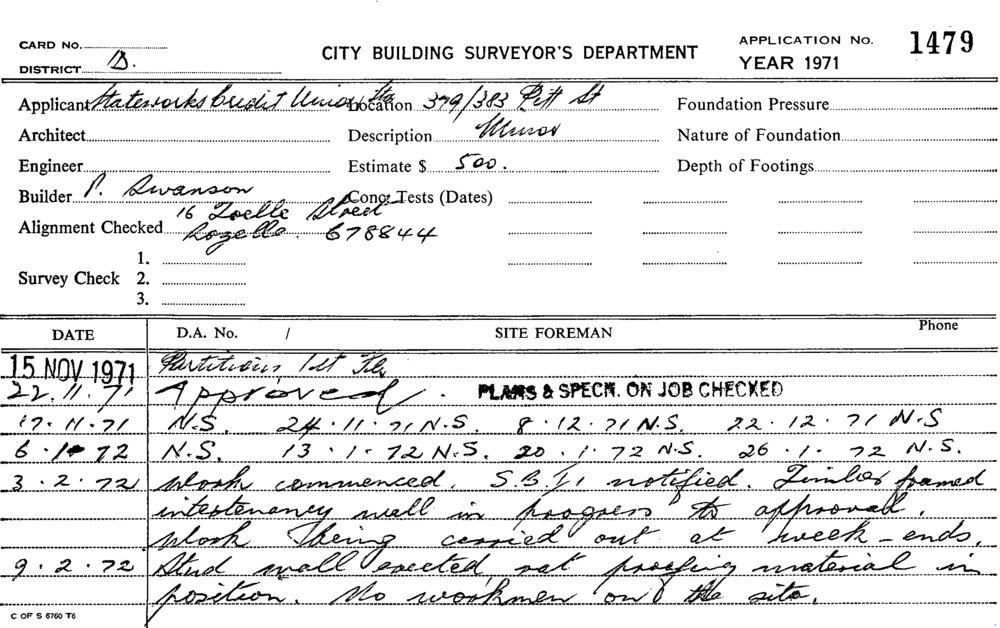 CARD No.
DISTRICT B.
CITY BUILDING SURVEYOR'S DEPARTMENT
APPLICATION No. 1479
YEAR 1971
Applicant Stateworks Credit Union Ltd Location 379/383 Pitt St Foundation Pressure
Architect Description Minor Nature of Foundation
Engineer Estimate $ 500. Depth of Footings
Builder P. Swanson Conc. Tests (Dates)
16 Street
Alignment Checked Rozelle. 678844
1.
Survey Check 2.
3.
DATE D.A. No. / SITE FOREMAN Phone
15 NOV 1971 Partitions 1st Flr
22.11.71 Approved. PLANS & SPECN. ON JOB CHECKED
17.11.71 N.S. 24.11.71 N.S. 8.12.71 N.S. 22.12.71 N.S
6.1.72 N.S. 13.1.72 N.S. 20.1.72 N.S. 26.1.72 N.S.
3.2.72 Work commenced. S.B.I. notified. Timber framed
intertenancy wall in progress to approval.
Work being carried out at week-ends.
9.2.72 Stud wall erected, rat proofing material in
position. No workmen on the site.
C OF S 6760 T6